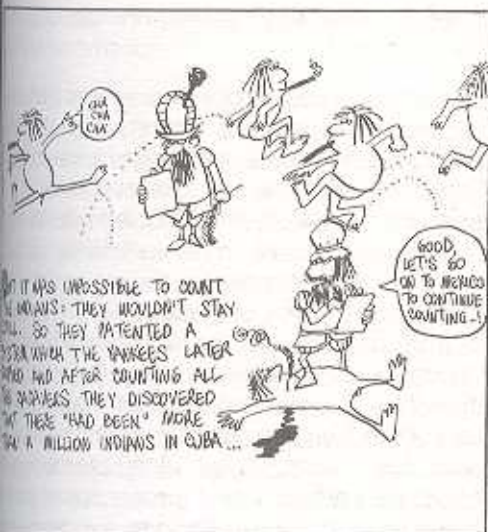 CHA
CHA
CHA
IT WAS IMPOSSIBLE TO COUNT
INDIANS: THEY WOULDN'T STAY
SO THEY PATENTED A
WHICH THE YANKEES LATER
AND AFTER COUNTING ALL
THEY DISCOVERED
THERE "HAD BEEN" MORE
A MILLION INDIANS IN CUBA...
GOOD,
LET'S GO
ON TO MEXICO
TO CONTINUE
COUNTING